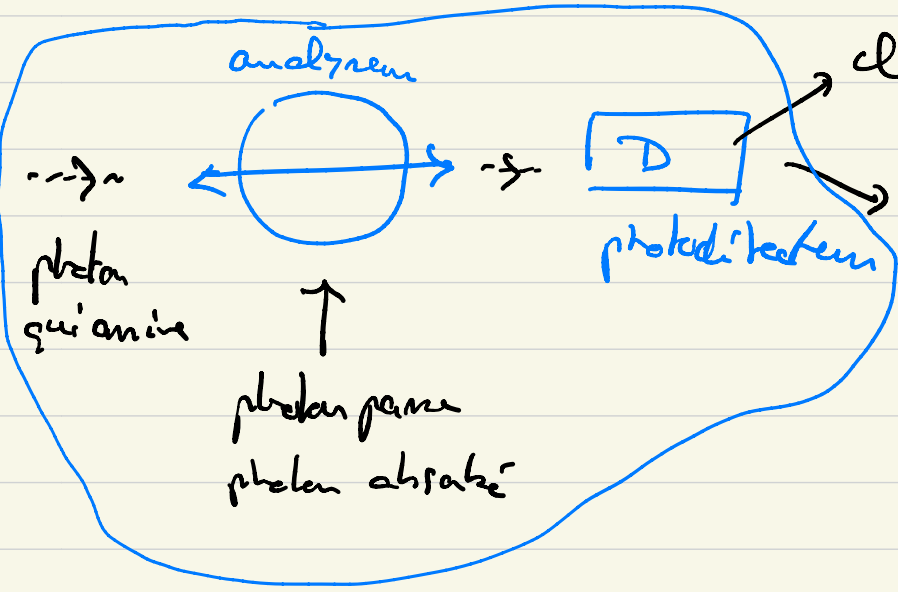 analyseur
cl
D
photodétecteur
photon
qui arrive
photon passe
photon absorbé